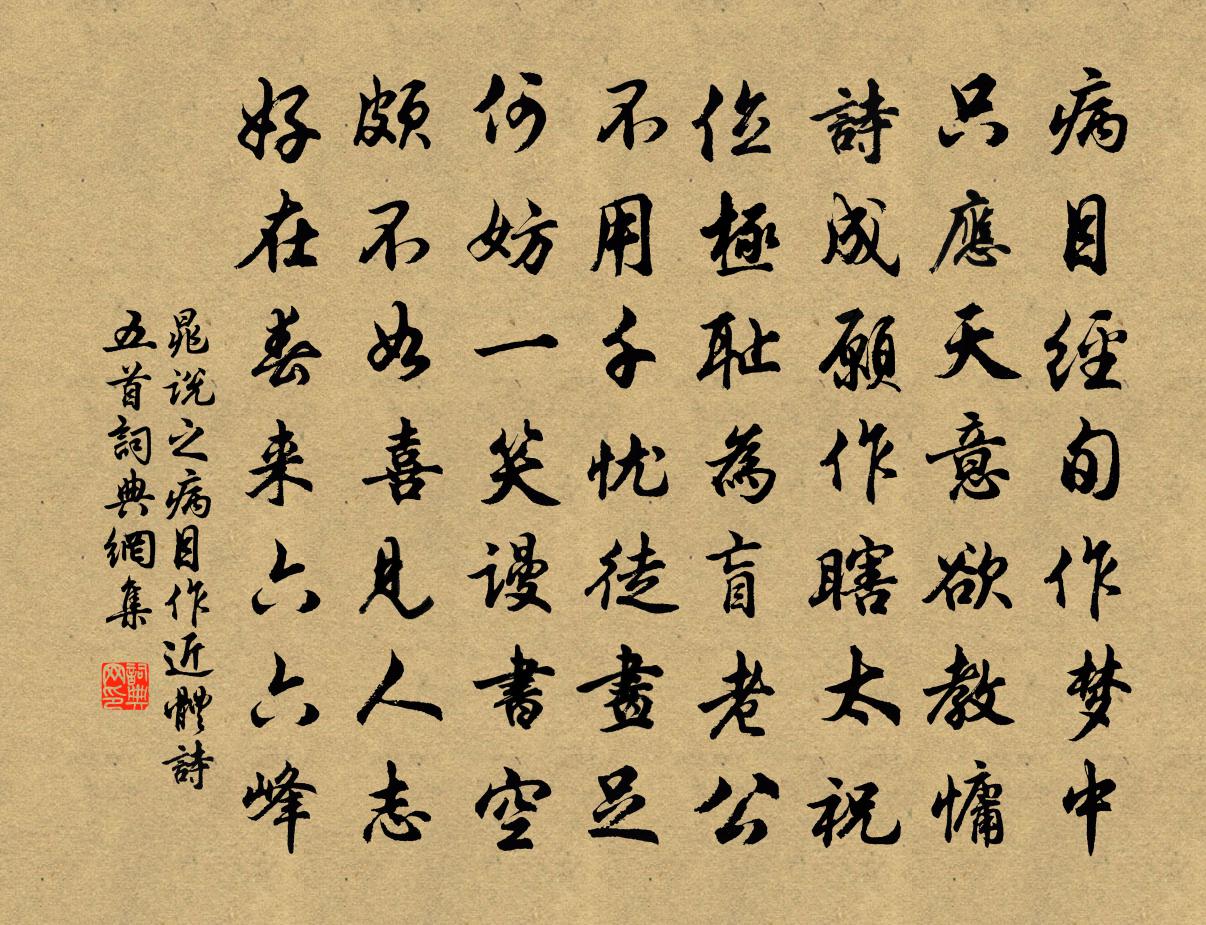 病目經旬作梦中
只應天意欲教慵
詩成願作瞎太祝
位極耻為盲老公
不用千忧徒畫足
何妨一笑谩書空
頗不如喜見人志
好在春来六六峰
晁说之病目作近體詩
五首詞典網集
詞典网印